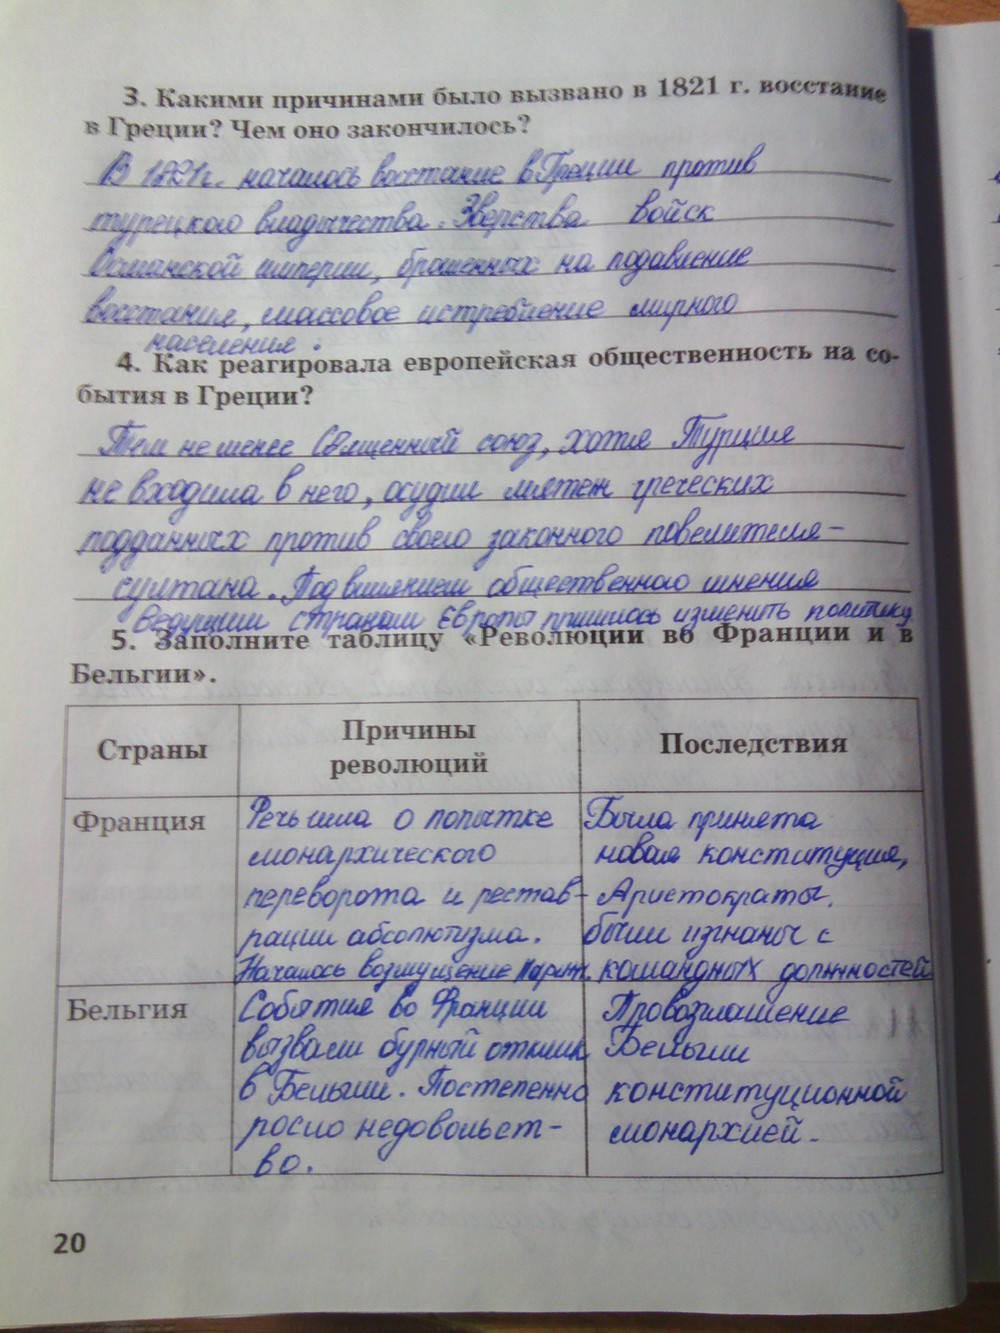 3. Какими причинами было вызвано в 1821 г. восстание
в Греции? Чем оно закончилось?
В 1821г. началось восстание в Греции против
турецкого владычества. Зверства войск
Османской империи, брошенных на подавление
восстания, массовое истребление мирного
населения.
4. Как реагировала европейская общественность на со-
бытия в Греции?
Тем не менее Священный союз, хотя Турция
не входила в него, осудил мятеж греческих
подданных против своего законного повелителя-
султана. Под влиянием общественного мнения
ведущим странам Европы пришлось изменить политику
5. Заполните таблицу «Революции во Франции и в
Бельгии».
Страны
Причины
революций
Последствия
Франция
Речь шла о попытке
монархического
переворота и рестав-
рации абсолютизма.
Началось возмущение париж.
Была принята
новая конституция,
Аристократы.
были изгнаны с
командных должностей
Бельгия
События во Франции
вызвали бурный отклик
в Бельгии. Постепенно
росло недовольст-
во.
Провозглашение
Бельгии
конституционной
монархией.
20